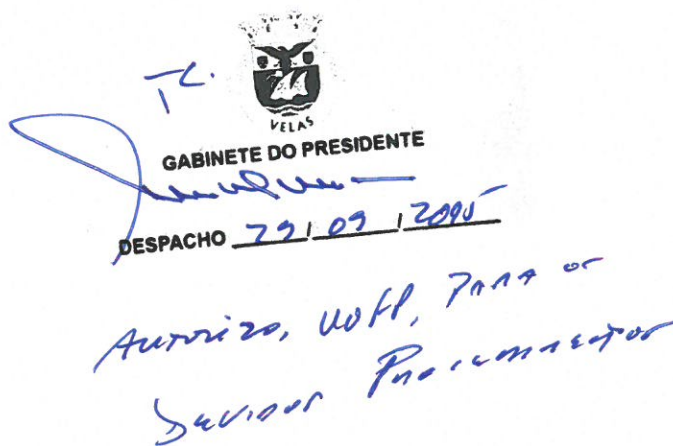 T.C.
VELAS
GABINETE DO PRESIDENTE
DESPACHO 29/09/2005
Autorizo, UOFP, PARA os
Devidos Procedimentos